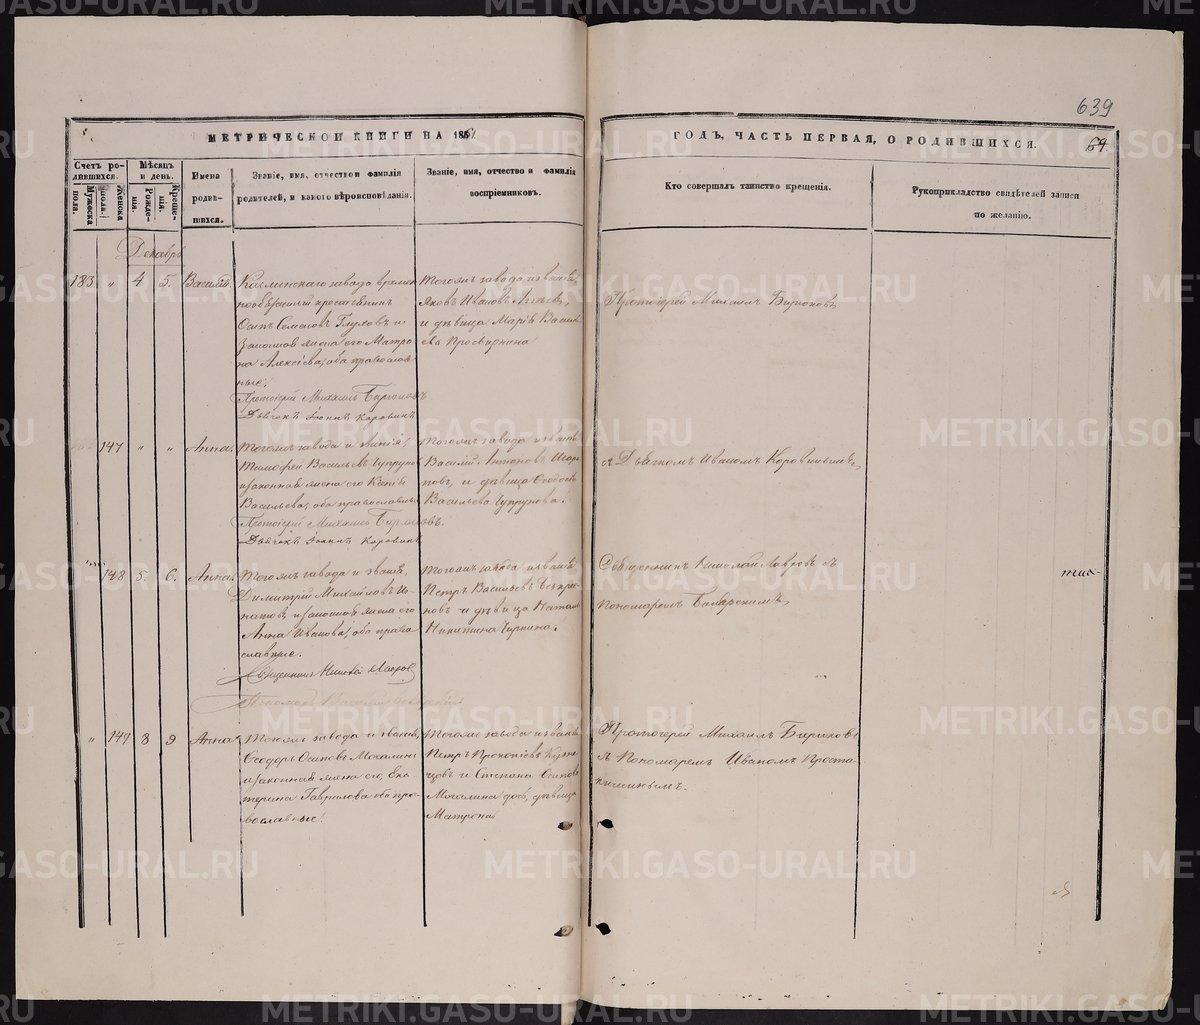 639
МЕТРИЧЕСКОЙ КНИГИ НА 1861
ГОДЪ, ЧАСТЬ ПЕРВАЯ, О РОДИВШИХСЯ.
64.
Счетъ ро-
дившихся.
Мужеска
пола.
Женска
пола.
Мѣсяцъ
и день.
Рожде-
нія.
Креще-
нія.
Имена
родив-
шихся.
Званіе, имя, отчество и фамилія
родителей, и какого вѣроисповѣданія.
Званіе, имя, отчество и фамилія
воспріемниковъ.
Кто совершалъ таинство крещенія.
Рукоприкладство свидѣтелей записи
по желанію.
Декабрь
183. " 4 5. Василій.
Каслинскаго завода времен
нообязанный крестьянинъ
Осипъ Семеновъ Глуховъ и
Законная жена его Матро
на Алексіева, оба православ
ные.
Протоіерей Михаилъ Бирюковъ
Дьячокъ Іоаннъ Коровинъ
Тогожъ завода и званія,
Яковъ Ивановъ
и дѣвица Марія Василь
ева Просвирнина
Протоіерей Михаилъ Бирюковъ
147 " " Анна.
Тогожъ завода и званія,
Тимофей Васильевъ Чупруновъ
и законная жена его
Васильева, оба православные
Протоіерей Михаилъ Бирюковъ.
Дьячокъ Іоаннъ Коровинъ
Тогожъ завода и званія
Василій Антоновъ
и дѣвица Ѳеодосія
Васильева Чупрунова.
съ Дьячкомъ Иваномъ Коровинымъ,
148 5. 6. Анна.
Тогожъ завода и званія,
Димитрій Михайловъ Иг-
натовъ, и законная жена его
Анна Иванова, оба право
славные.
Священникъ Николай Лавровъ
Пономарь Василій
Тогожъ завода и званія
Петръ Васильевъ
и дѣвица Наталья
Никитина
Священникъ Николай Лавровъ съ
Пономаремъ
" 149 8 9 Анна
Тогожъ завода и званія,
Ѳеодоръ Осиповъ Мочалинъ
и законная жена его, Ека
терина Гаврилова оба пра-
вославные.
Тогоже завода и званія
Петръ Прокопіевъ Кузне
цовъ и Степана Осипова
Мочалина дочь, дѣвица
Матрона
Протоіерей Михаилъ Бирюковъ
съ Пономаремъ Иваномъ Проста-
кишинымъ.
METRIKI.GASO-URAL.RU